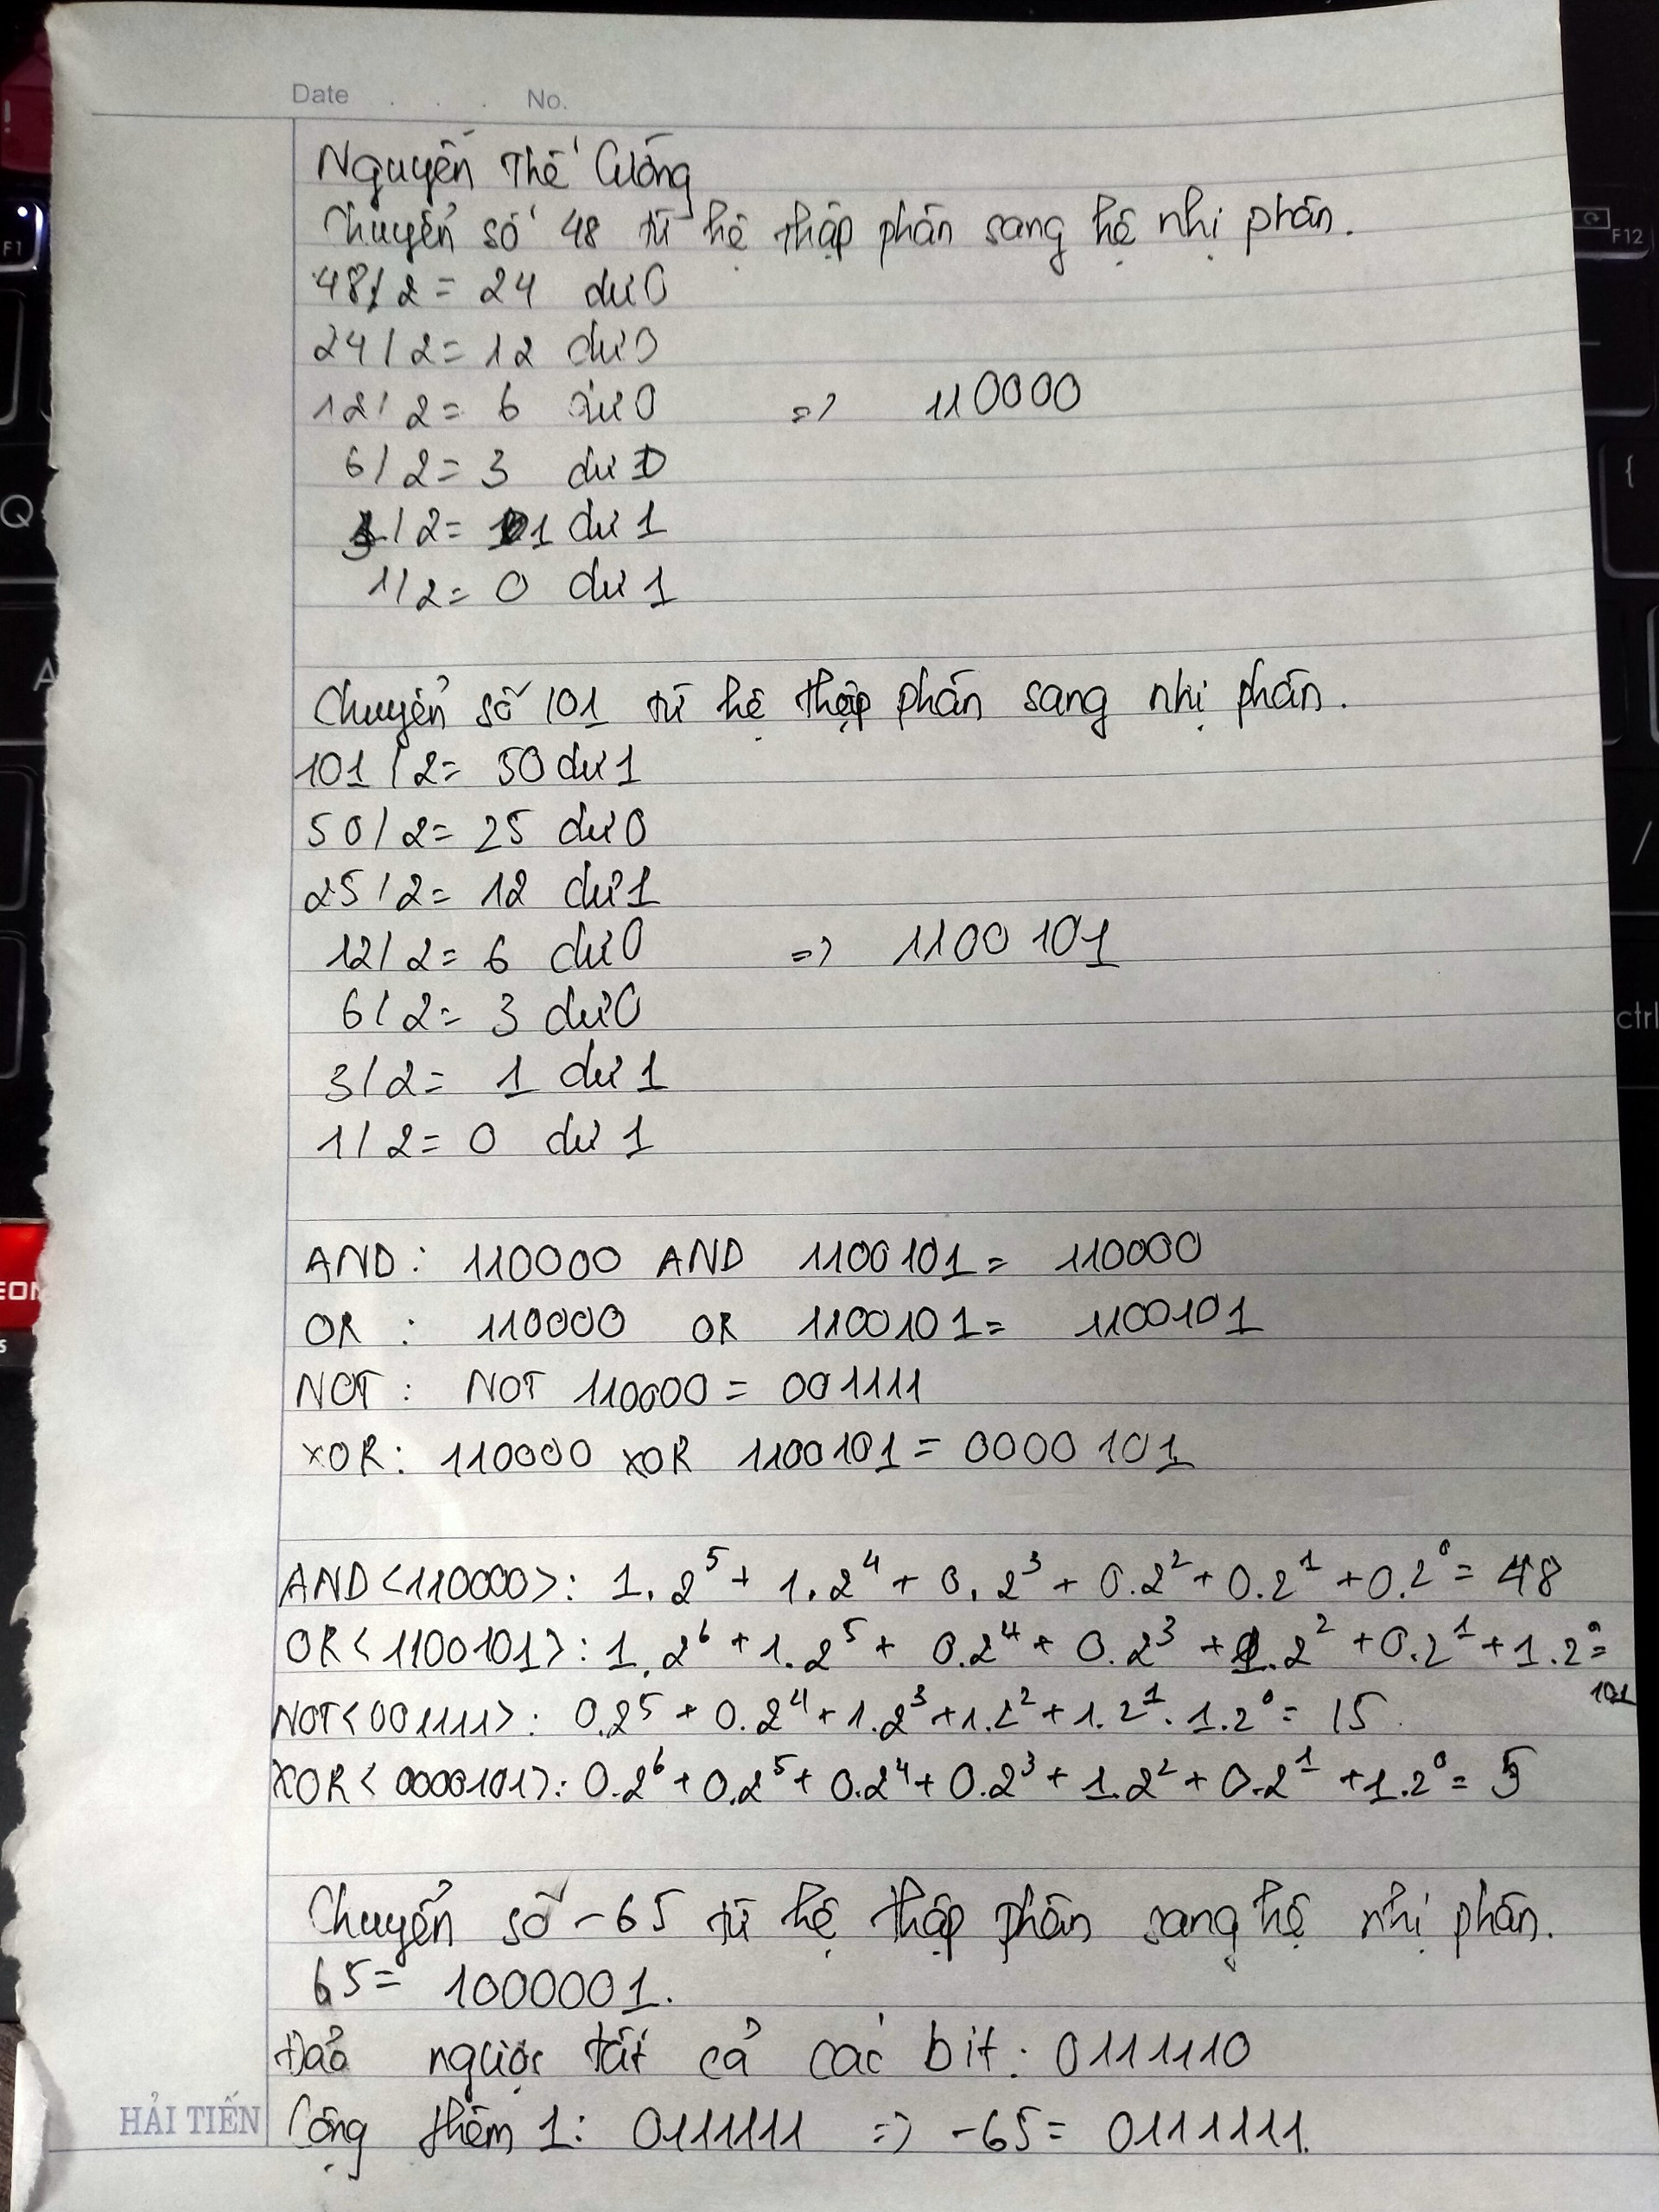 Date . . . No.
Nguyễn Thế Cường
Chuyển số 48 từ hệ thập phân sang hệ nhị phân.
48/2 = 24 dư 0
24/2 = 12 dư 0
12/2 = 6 dư 0 => 110000
6/2 = 3 dư 0
3/2 = 1 dư 1
1/2 = 0 dư 1
Chuyển số 101 từ hệ thập phân sang nhị phân.
101/2 = 50 dư 1
50/2 = 25 dư 0
25/2 = 12 dư 1
12/2 = 6 dư 0 => 1100101
6/2 = 3 dư 0
3/2 = 1 dư 1
1/2 = 0 dư 1
AND: 110000 AND 1100101 = 110000
OR : 110000 OR 1100101 = 1100101
NOT: NOT 110000 = 001111
XOR: 110000 XOR 1100101 = 0000101
AND<110000>: 1.2⁵ + 1.2⁴ + 0.2³ + 0.2² + 0.2¹ + 0.2⁰ = 48
OR<1100101>: 1.2⁶ + 1.2⁵ + 0.2⁴ + 0.2³ + 1.2² + 0.2¹ + 1.2⁰ =
101
NOT<001111>: 0.2⁵ + 0.2⁴ + 1.2³ + 1.2² + 1.2¹ . 1.2⁰ = 15.
XOR<0000101>: 0.2⁶ + 0.2⁵ + 0.2⁴ + 0.2³ + 1.2² + 0.2¹ + 1.2⁰ = 5
Chuyển số -65 từ hệ thập phân sang hệ nhị phân.
65 = 1000001.
Đảo ngược tất cả các bit: 0111110
HẢI TIẾN Cộng thêm 1: 0111111 => -65 = 0111111.
F1
F12
Q
A
{
/
ctrl